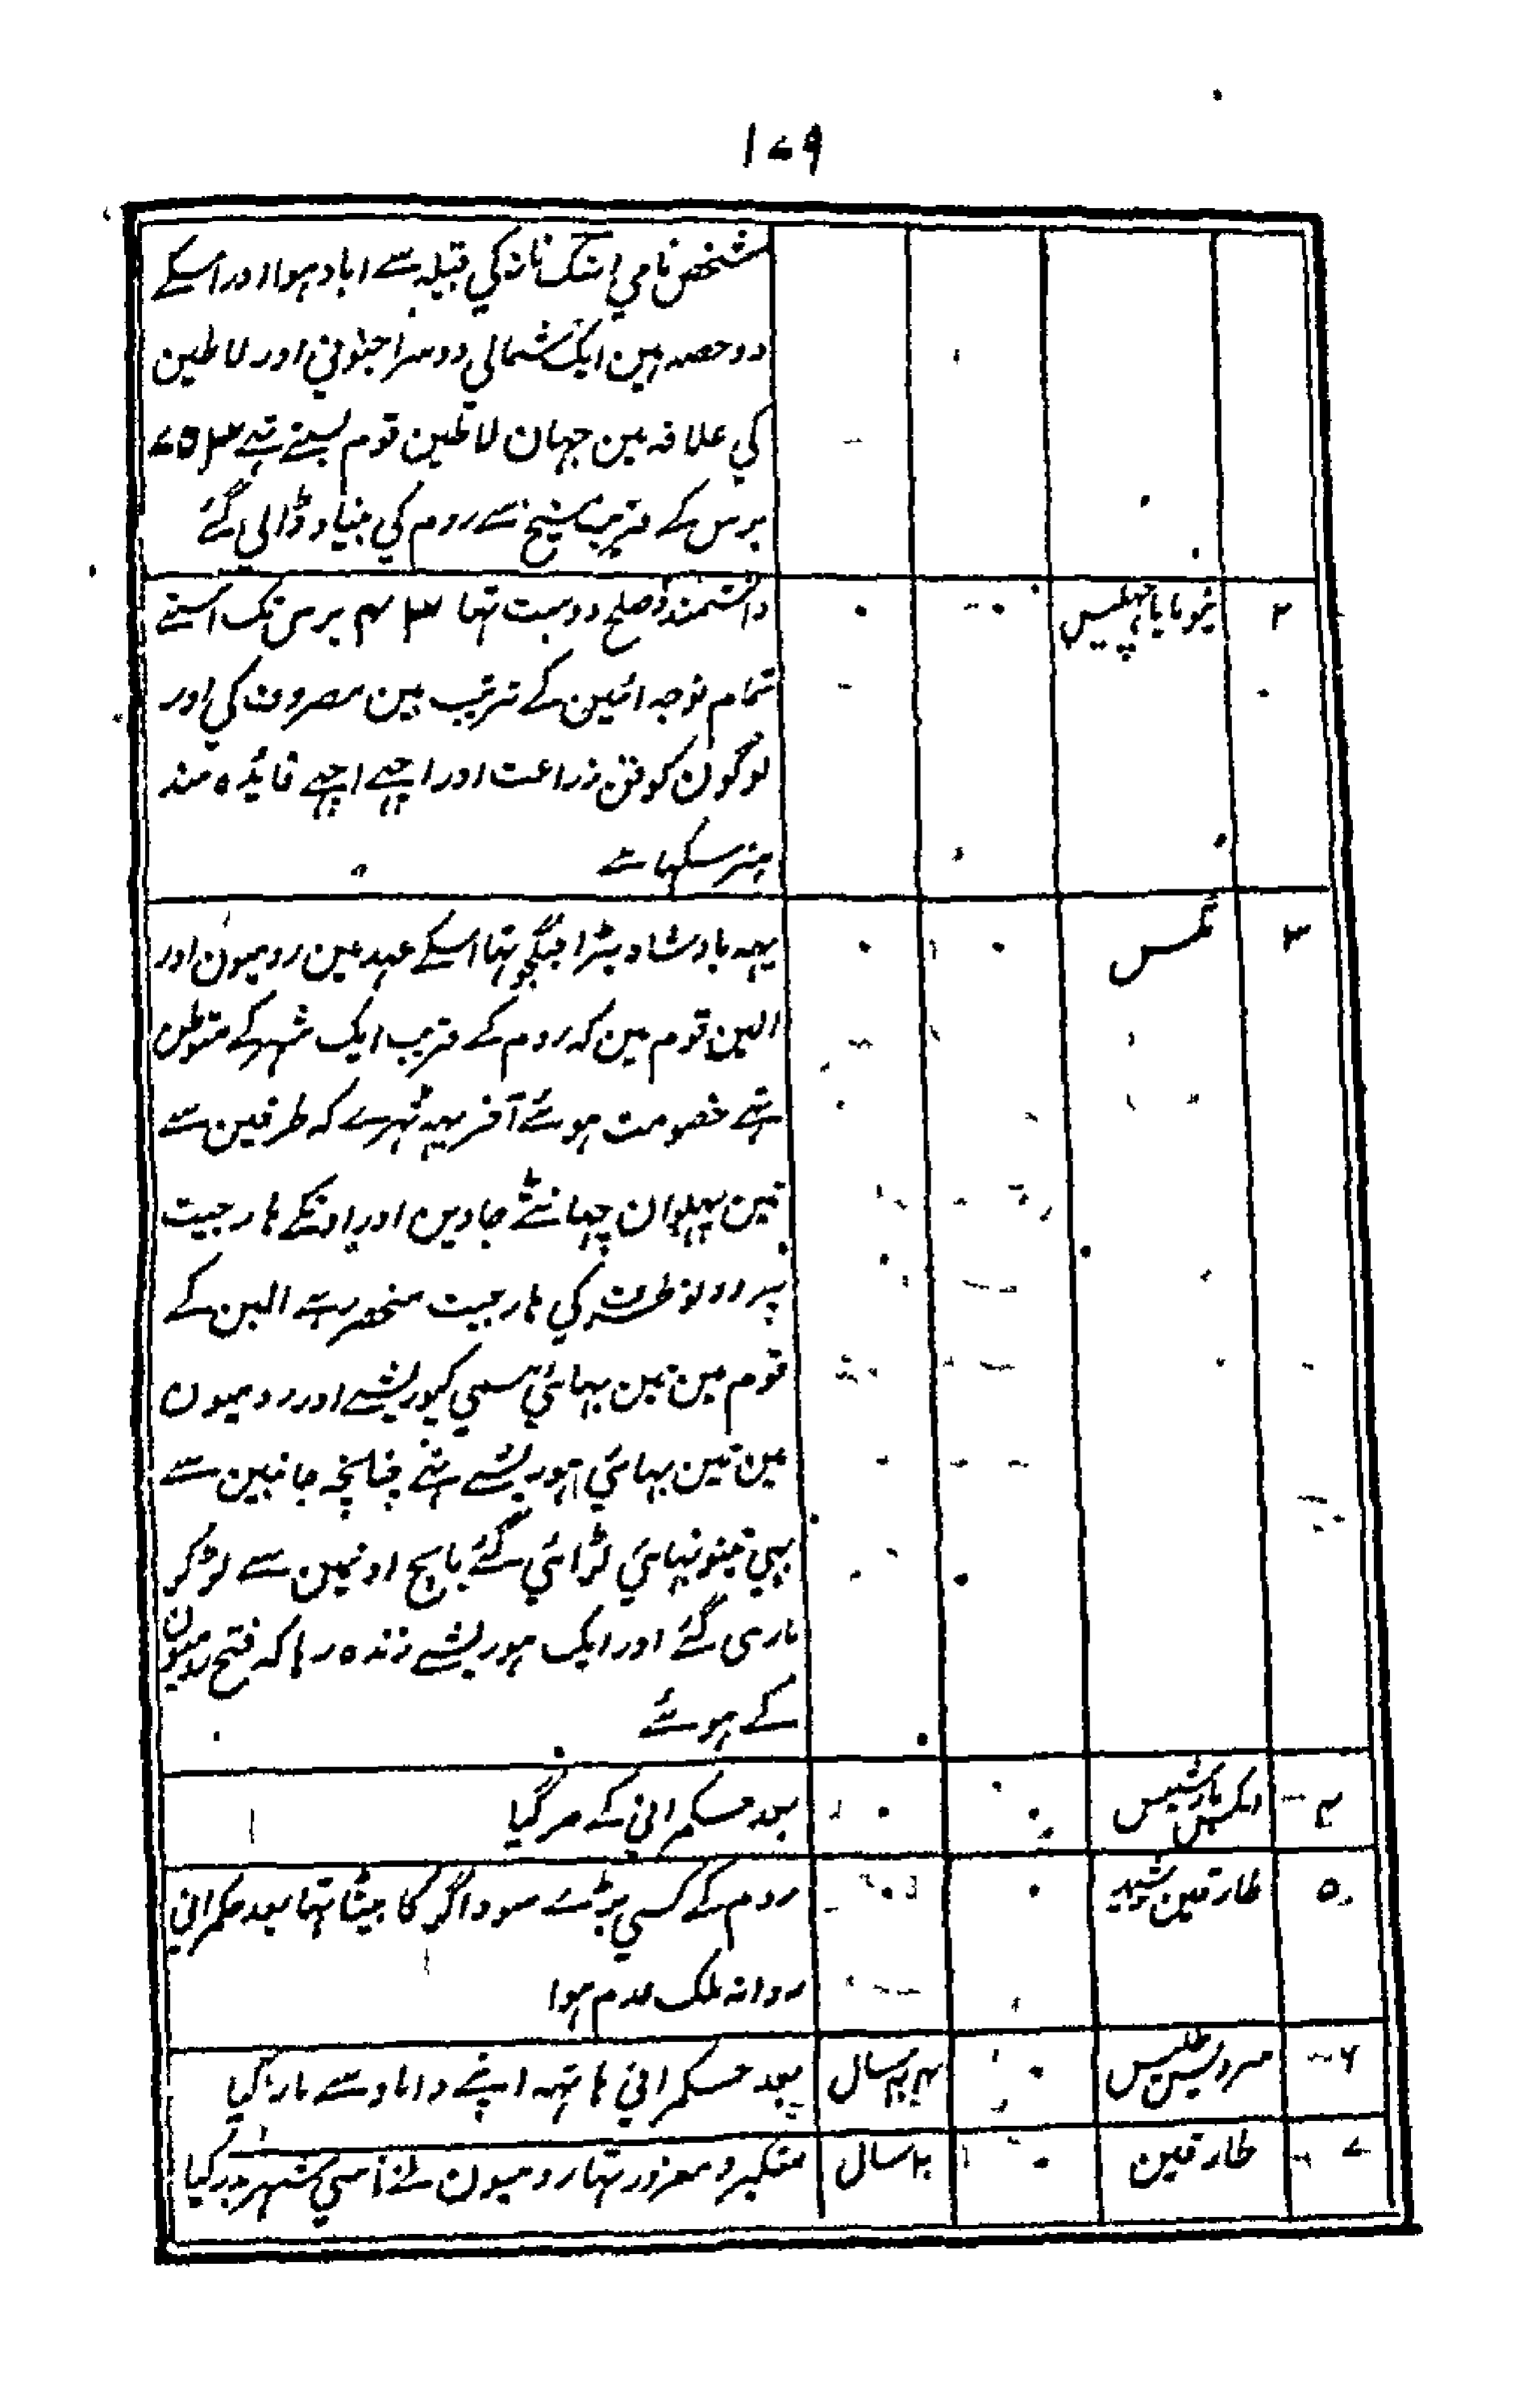 ۱۷۹
شخص نامي اشک ناز کي قبیلہ سے اباد ہوا اور اسکے
دو حصہ ہین ایک شمالي دوسرا جنوبي اور لاطین
کي علاقہ مین جہان لاطین قوم بستے تہے ۷۵۳
برس کے قریب مسیح سے روم کي بنیاد ڈالي گئے
۲ نیوما پا ۰ ۰ دانشمند و صلح دوست تہا ۴۳ برس تک اسنے
تمام توجہ ائین کے ترتیب مین مصروف کي اور
لوگون کو فن زراعت اور اچہے اچہے فایدہ مند
ہنر سکہاے
۳ ٹلس ۰ ۰ یہہ بادشاہ بڑا جنگجو تہا اسکے عہد مین رومیون اور
البن قوم مین کہ روم کے قریب ایک شہر کے متوطن
تہے خصومت ہوئے آخر یہہ ٹہرے کہ طرفین سے
تین پہلوان چہانٹے جاوین اور اونکے ہار جیت
پر دونو طرف کي ہار جیت منحصر رہے البن کے
قوم مین تین بہائي مسمي کیوریشے اور رومیون
مین تین بہائي ہوریشے تہے چنانچہ جانبین سے
یہي تینو بہائي لڑائي گئے پانچ اونمین سے لڑکر
ماری گئے اور ایک ہوریشے زندہ رہا کہ فتح رومیون
کے ہوئے
۴ انکس مارشیس ۰ ۰ بعد حکمراني کے مر گیا
۵ طارقین ۰ ۰ روم کے کسي بڑے سوداگر کا بیٹا تہا بعد حکمراني
روانہ ملک عدم ہوا
۶ سرویس طلیس ۰ ۴۴ سال بعد حکمراني ہاتہہ اپنے داماد سے مارا گیا
۷ طارقین ۰ سال متکبر و مغرور تہا رومیون نے شہر بدر کیا